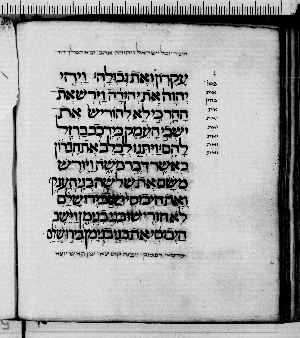 וכל ישראל ויהודה אהב המלך דוד
עקרון ואת גבולה ויהי
יהוה את יהודה וירש את
ההר כי לא להוריש את
ישבי העמק כי רכב ברזל
להם ויתנו לכלב את חברון
כאשר דבר משה ויורש
משם את שלשה בני הענק
ואת היבוסי ישב ירושלם
לא הורישו בני בנימן וישב
היבוסי את בני בנימן בירושלם
ואת
ואת
ואת
ואת
ואת